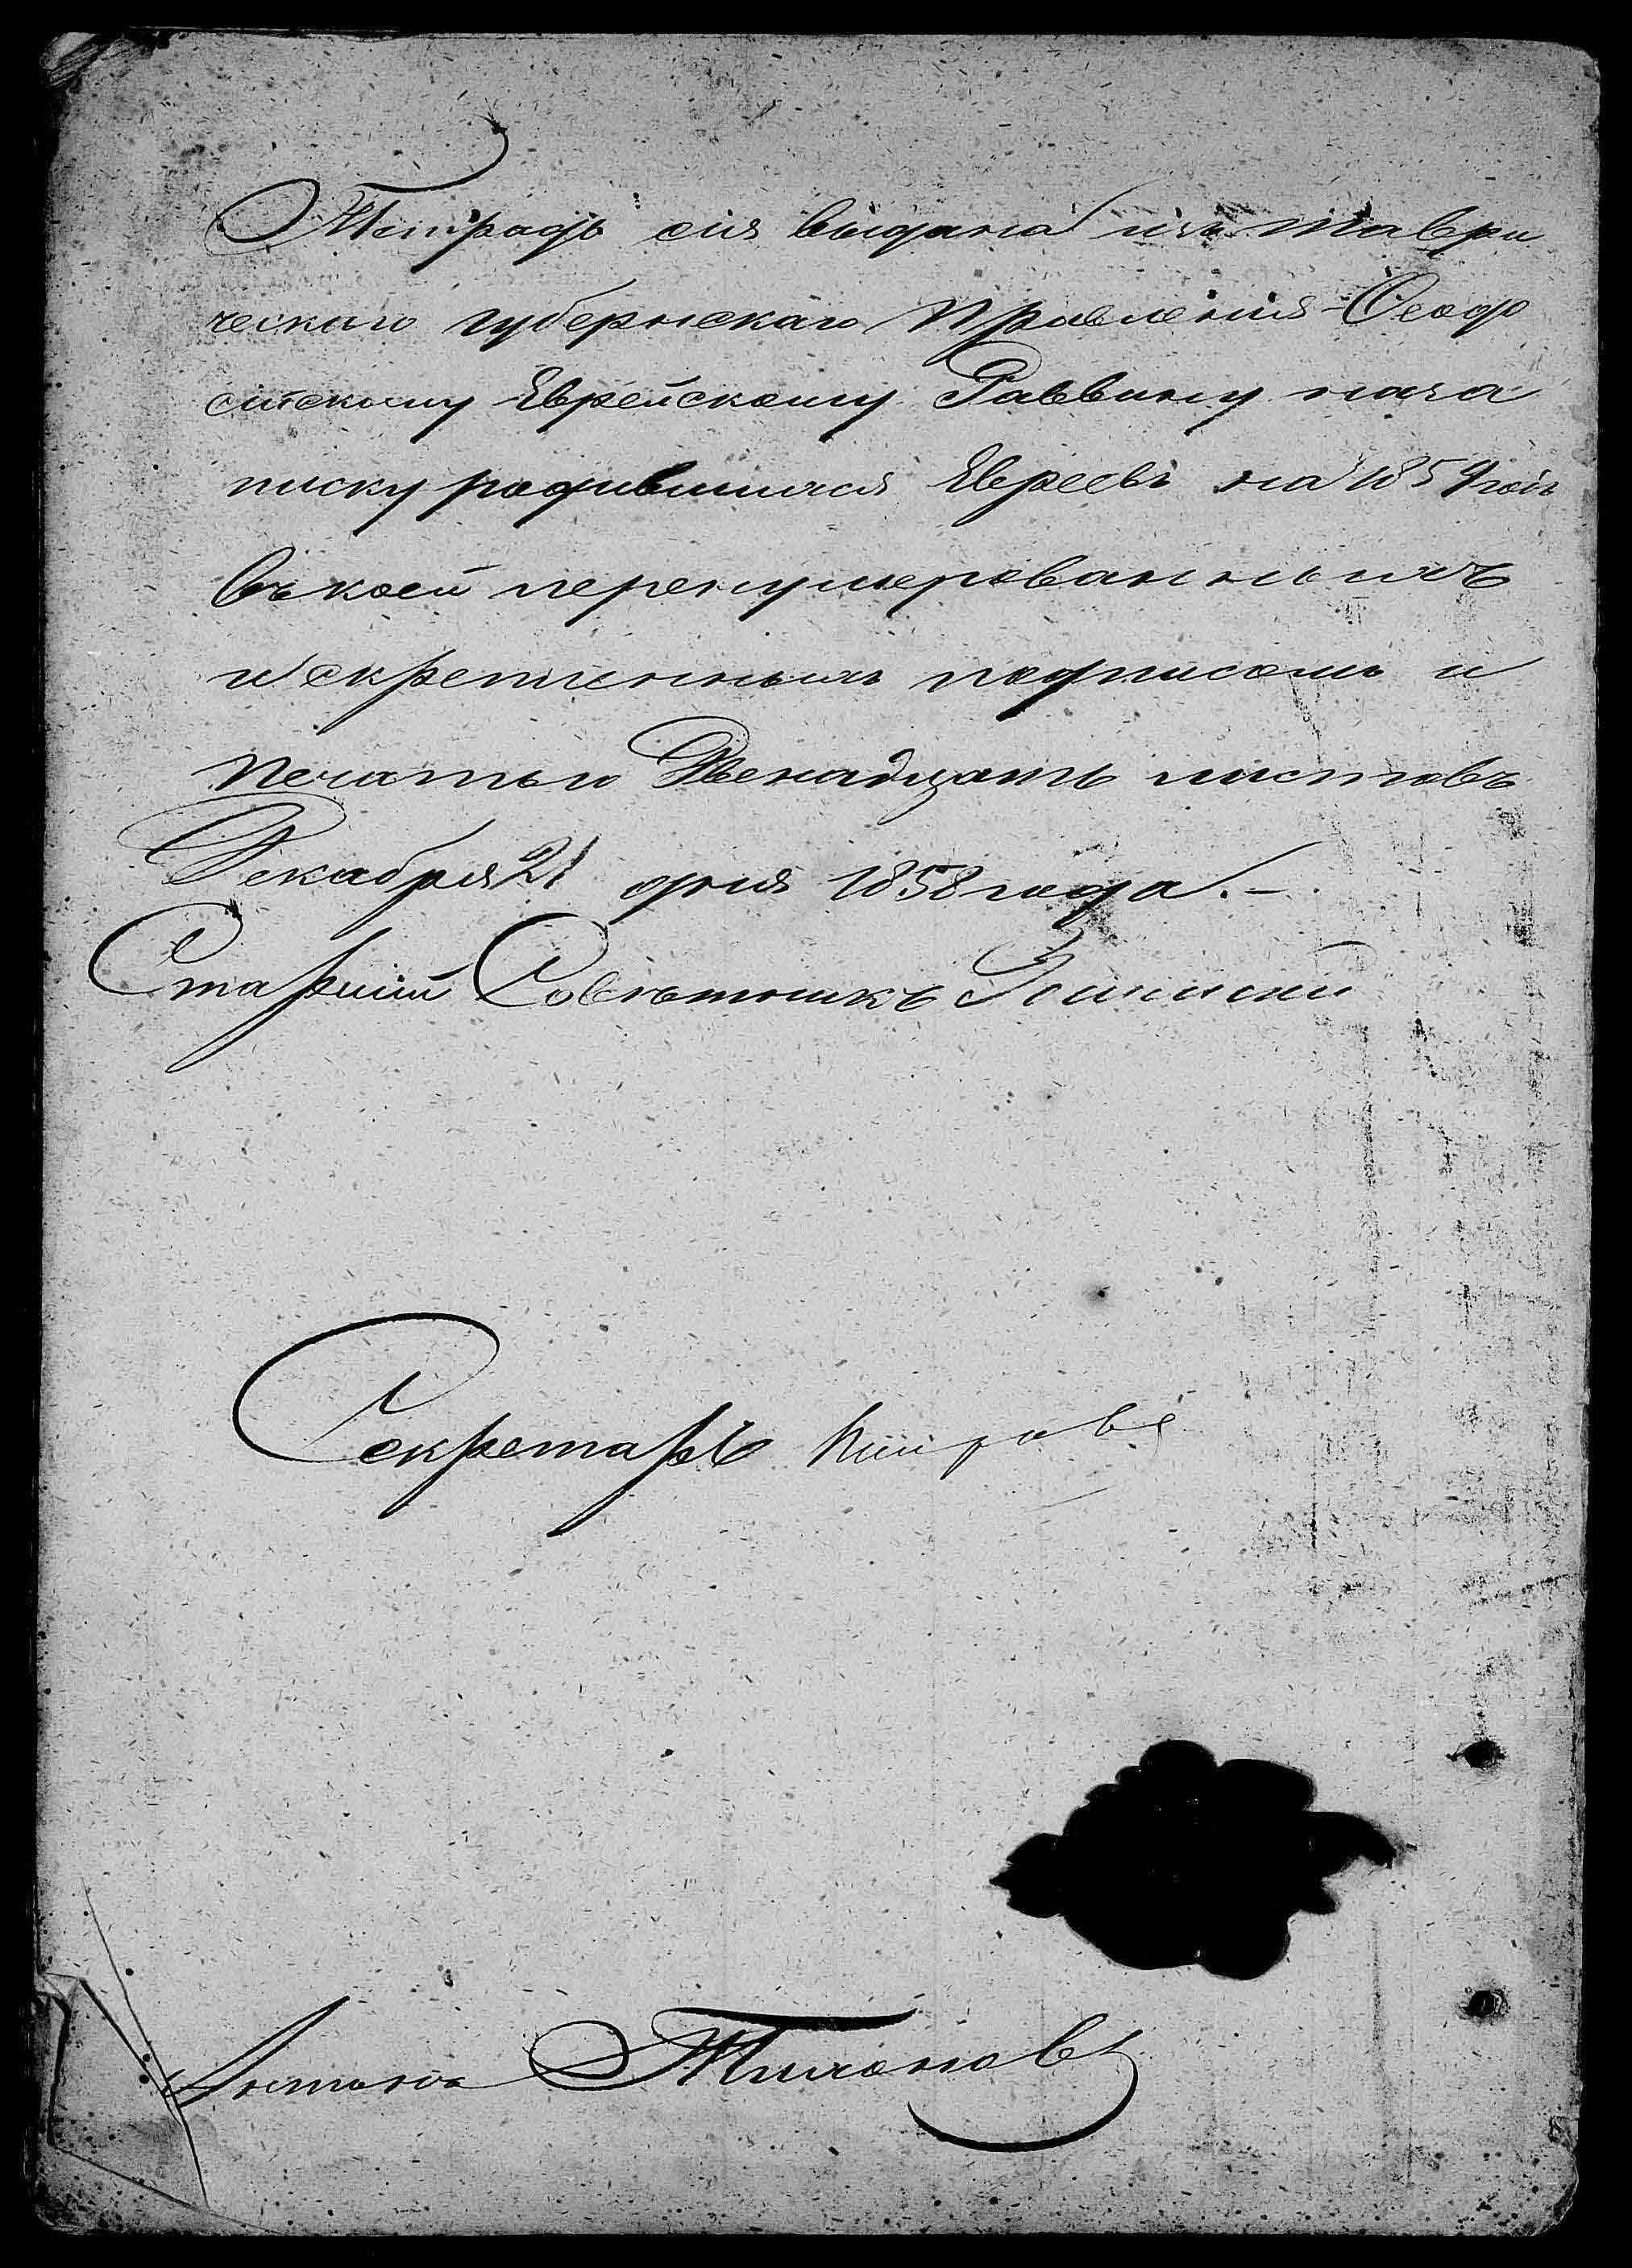 Тетрадь сія выдана изъ Таври
ческаго губернскаго Правленія Ѳеодо
сійскому Еврейскому Раввину на за
писку родившихся Евреевъ на 1859 годъ
въ коей перенумерованныхъ
и скрепленныхъ подписомъ и
печатью Двенадцать листовъ
Декабря 21 дня 1858 года.-
Старшій Совѣтникъ
Секретарь
Тихоновъ